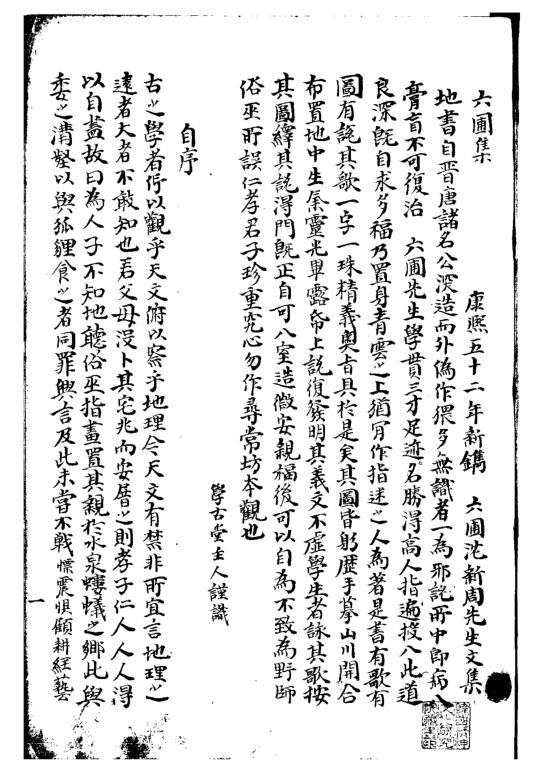 六圃集　康熙五十二年新鐫　六圃沈新周先生文集
地書自晉唐諸名公深造而外偽作猥多無識者一為邪說所中即病入
膏肓不可復治　六圃先生學貫三才足迹名勝得高人指遍授入此道
良深旣自求多福乃置身青雲之上猶冐作指迷之人為著是書有歌有
圖有說其歌一字一珠精義奧旨具於是矣其圖皆躬歷手摹山川開合
布置地中生氣靈光畢露帋上說復發明其義文不虛學生者詠其歌按
其圖繹其說得門旣正自可入室造微安親福後可以自為不致為野師
俗巫所誤仁孝君子珍重究心勿作尋常坊本觀也
學古堂主人謹識
自序
古之學者仰以觀乎天文俯以察乎地理今天文有禁非所宜言地理之
遠者大者不敢知也若父母沒卜其宅兆而安厝之則孝子仁人人人得
以自盡故曰為人子不知地聽俗巫指畫置其親於水泉螻蟻之鄉此與
委之溝壑以與狐狸食之者同罪興言及此未嘗不戰慄震惧顧耕經藝
一